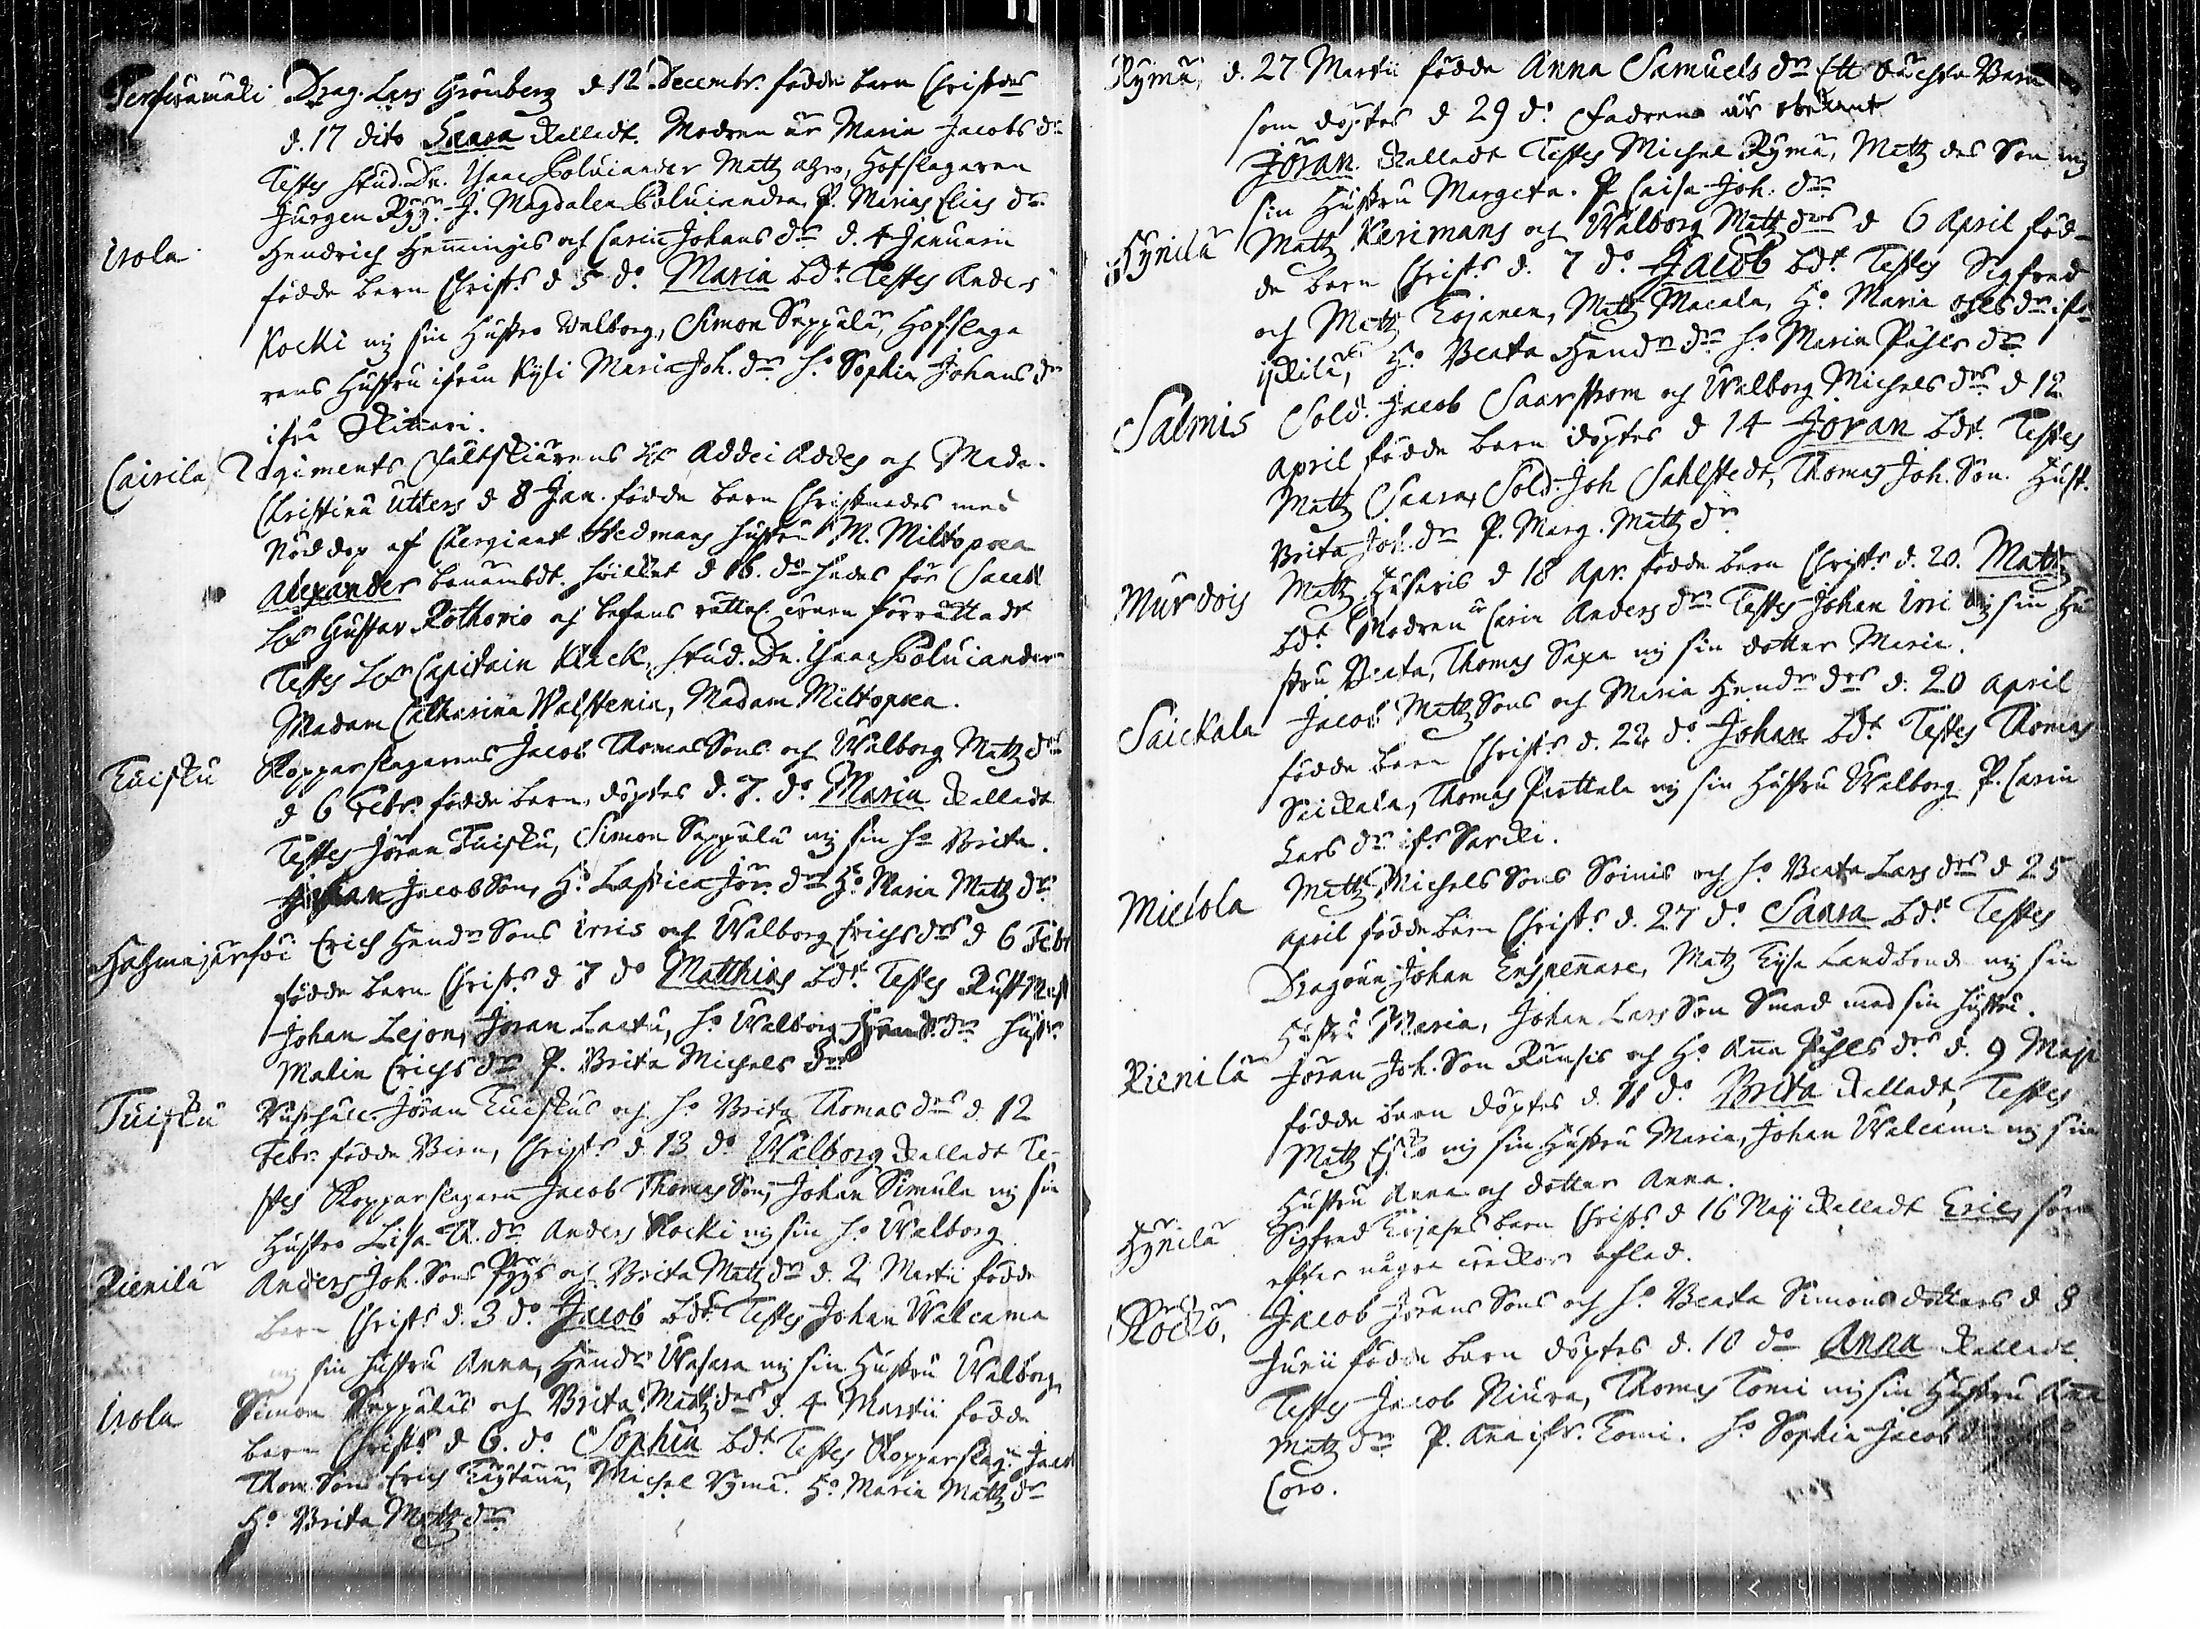 Drag. Lars Grönberg d 12 Decembr. födde barn Christnes
d. 17 dito Saara kalladt. Modren är Maria Jacobs dr
Testes stud. Dn. Isaac Polviander Matz Hofslagaren
Jürgen J. Magdalena Polviandra, P. Maria Elias dr.
Isola Hendrich Henningis och Carin Johans dr d. 4 Januarii
födde barn Christ.s d 5 do Maria bdt. Testes Anders
Kocki mz sin hustro Walborg, Simon Seppälä, Hofslaga
rens hustru ifrån Kyhi Maria Joh. dr ho Sophia Johans dr
ifrå
Cairila Regiments fältskiärens Hr Addei Addes och Mada.
Christina Utters d 8 Jan. födde barn Christnades med
Nöddop af Sergiant Hedmans hustru M. Miltopoea
Alexander benämbdt. hvilket d 16. do
Hr Gustav Rothovio och förrättadt
Testes Hr Capitain Klick, stud. Dn. Isaac Polviander
Madam Catharina Walstenia, Madam Miltopoea.
Tuisku Kopparslagarens Jacob Thomas Sons och Walborg Matz drs
d 6 Febr. födde barn, döptes d. 7. do Maria kalladt
Testes Jöran Tuisku, Simon Seppälä mz sin ho Brita.
Johan Jacob Son, Ho. Jör. dr Ho Maria Matz dr
Erich Hendr Sons Irris och Walborg Erichs drs d 6 Febr
födde barn Christ.s d 7 do Matthias bdt. Testes
Johan Lejon, Jöran Lactu, ho Walborg dr hustr.
Malin Erichs dr P. Brita Michels dr
Tuisku Jöran Tuiskus och ho Brita Thomas drs d. 12
Febr. födde Barn, Christ.s d. 13 do Walborg kalladt Te-
stes Kopparslagarn Jacob Thomas Son, Johan Simula mz sin
hustro Lisa dr Anders Kocki mz sin ho Walborg.
Rienilä Anders Joh. Sons och Brita Matz drs d. 2 Martii födde
barn Christ.s d. 3 do Jacob bdt. Testes Johan Walcama
mz sin hustru Anna, Hendr Wasara mz sin Hustru Walborg
Isola Simon Seppäläs och Brita Matz drs d. 4 Martii födde
barn Christ.s d 6. do Sophia bdt. Testes Kopparslag.n Jacob
Thom. Son Erich Michel Rymä. Ho Maria Matz dr
Ho Brita Matz dr
Rymä, d. 27 Martii födde Anna Samuels dr Ett oächta Barn
som döptes d 29 do Fadren är obekant
Jöran kalladt Testes Michel Rymä, Matz des Son mz
sin Hustru Margeta. P. Caisa Joh. dr
Hynilä Matz Kerimans och Walborg Matz drs d 6 April föd-
de barn Christ.s d. 7 do Jacob bdt Testes Sigfred
och Matz Toijanen, Matz Macala, Ho. Maria dr ifr.
Ho Beata Hendr dr ho Maria Påhls dr
Salmis Sold. Jacob Saarstrom och Walborg Michels drs d 12
April födde barn döptes d 14 Jöran bdt. Testes
Matz Saara, Sold. Joh Sahlstedt, Thomas Joh. Son. Hust.
Brita Joh. dr P. Marg. Matz dr
Murdois Matz Husaris d 18 Apr. födde barn Christ.s d. 20. Matz
bdt. Modren är Carin Anders dr Testes Johan Irri mz sin Hu
stru Beata, Thomas Saxa mz sin dotter Maria.
Saickala Jacob Matz Sons och Maria Hendr drs d. 20 April
födde barn Christ.s d. 22 do Johan bdt Testes Thomas
Saickala, Thomas Piottala mz sin Hustru Walborg P. Carin
Lars dr ifr.
Mielola Matz Michels Sons Soinis och ho Beata Lars drs d 25
April födde barn Christ.s d. 27 do Saara bdt Testes
Dragoun Johan Matz Landbonde mz sin
Hustru Maria, Johan Lars Son Smed med sin hustru.
Rienilä Jöran Joh. Son och Ho Anna Påhls drs d. 9 Maji
födde barn döptes d. 11 do Brita kalladt, Testes
Matz mz sin Hustru Maria, Johan Walcama mz sin
Hustru Anna och dotter Anna.
Hynilä Sigfred barn Christ.s d 16 Maij kalladt Eric, som
efter några weckor afled.
Jacob Jörans Sons och ho Beata Simons dotters d 8
Junii födde barn döptes d. 10 do Anna kalladt.
Testes Jacob Niura, Thomas Tomi mz sin Hustru Anna
Matz dr P. Anna ifr. Tomi. ho Sophia Jacobs
Coro.